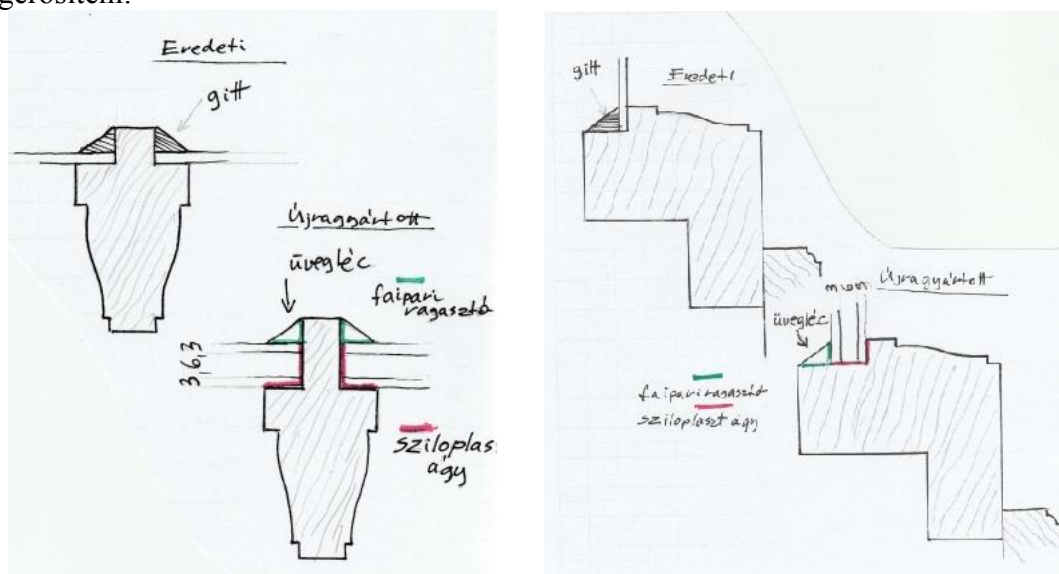 gerősítém.
Eredeti
gitt
Újraggyártott
üvegléc
faipari
ragasztó
3,6,3
sziloplas
ágy
gitt
Eredeti
Újragyártott
üvegléc
faipari ragasztó
sziloplaszt ágy